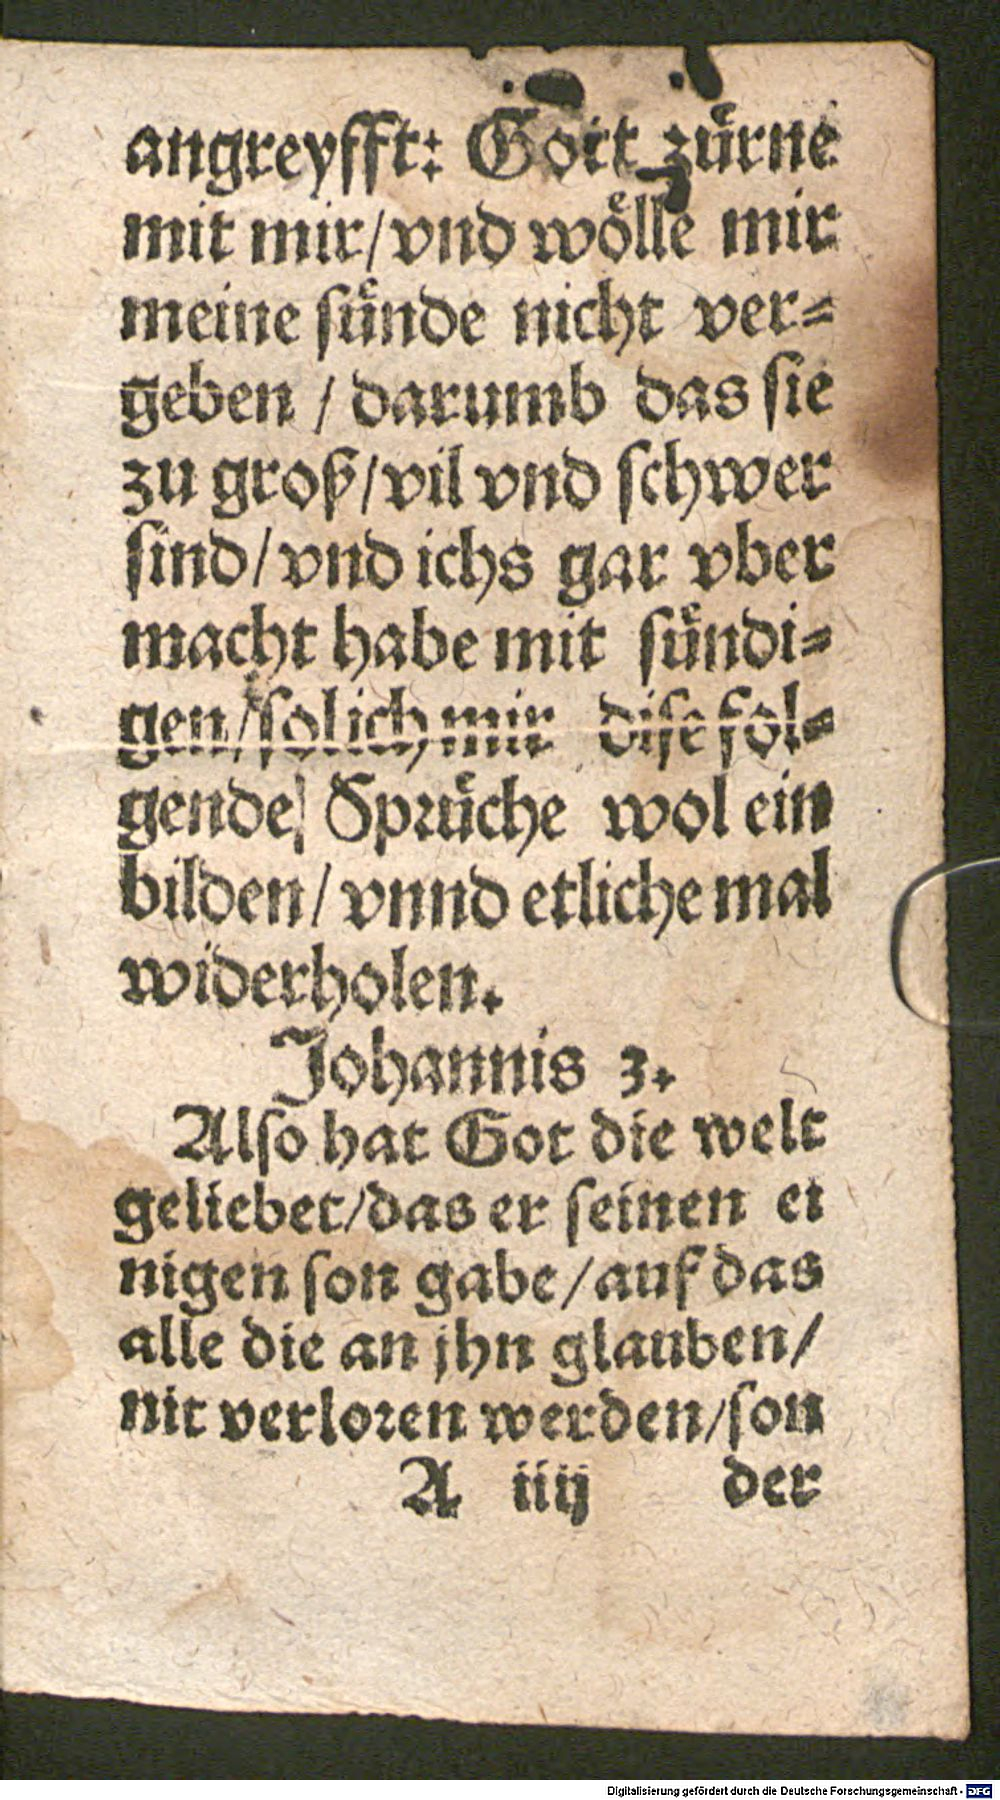 angreyfft: Gott zuͤrne
mit mir/ vnd woͤlle mir
meine suͤnde nicht ver⸗
geben / darumb das sie
zu groß/ vil vnd schwer
sind/ vnd ichs gar vber
macht habe mit suͤndi⸗
gen/ sol ich mir dise fol⸗
gende Spruͤche wol ein
bilden/ vnnd etliche mal
widerholen.
Johannis 3.
Also hat Got die welt
geliebet/ das er seinen ei
nigen son gabe/ auf das
alle die an jhn glauben/
nit verloren werden/ son
A iiij der
Digitalisierung gefördert durch die Deutsche Forschungsgemeinschaft - DFG